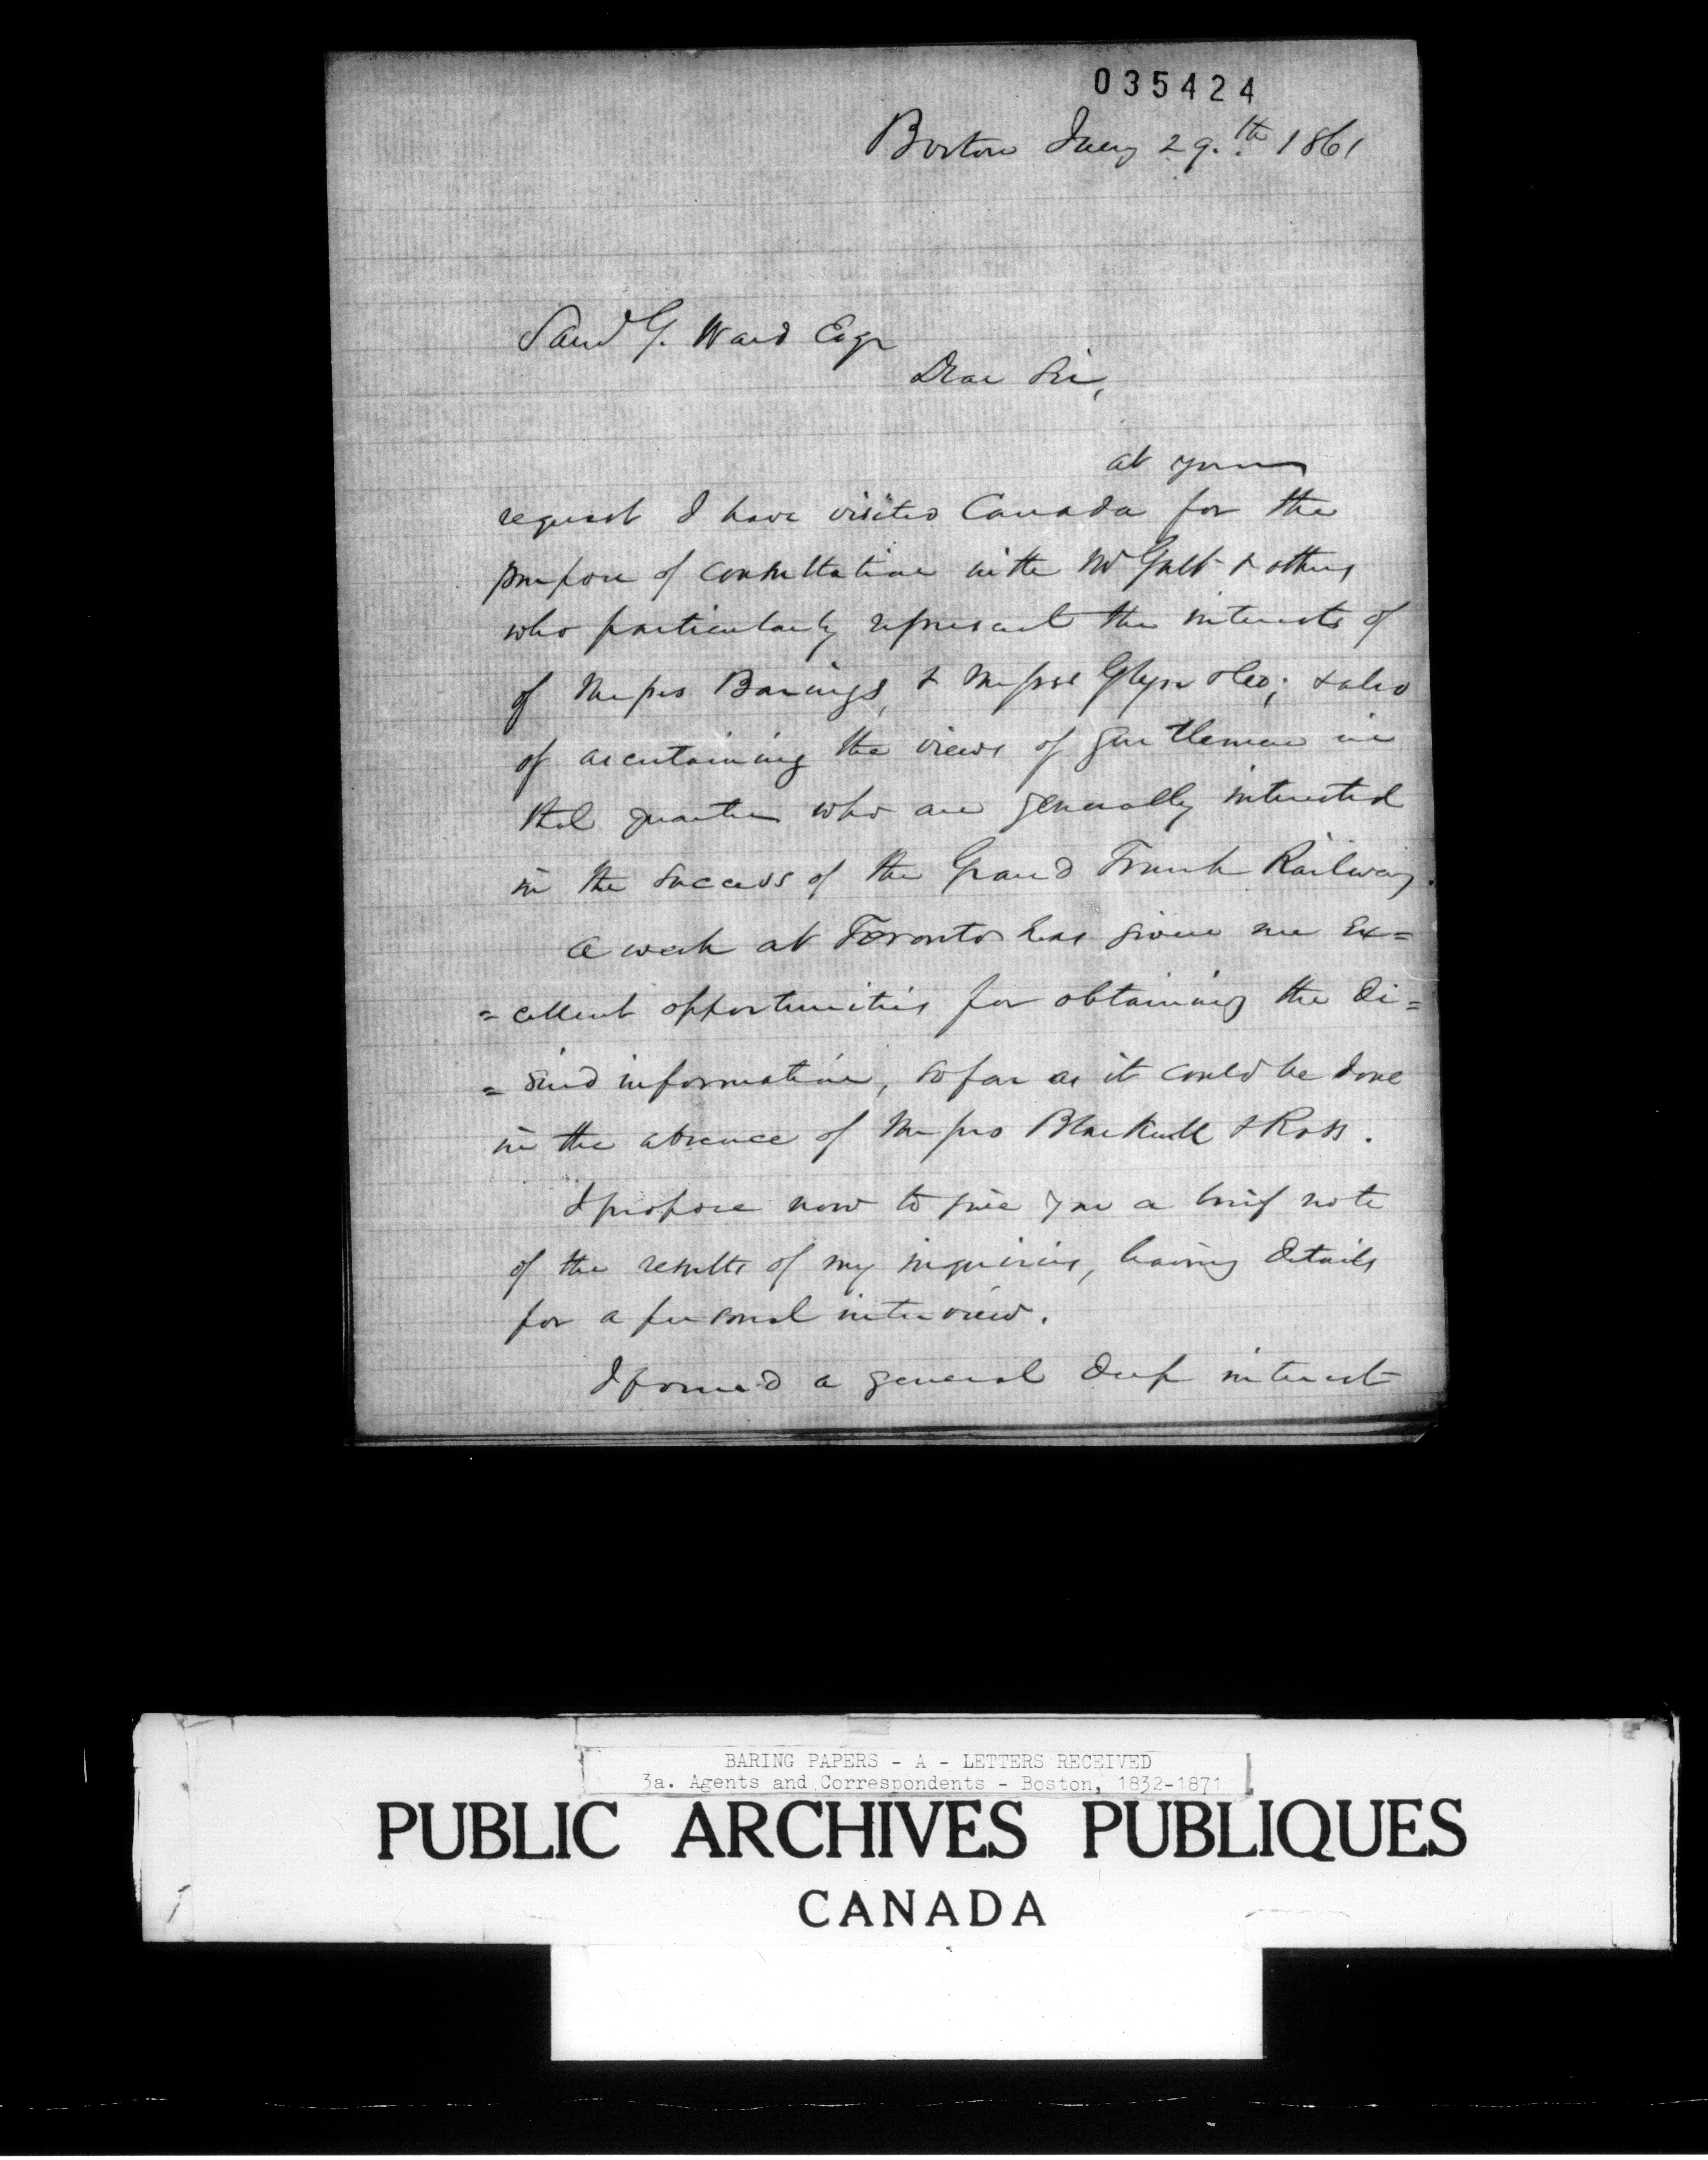 035424
Boston Jany 29.th 1861
Saml G. Ward Esqr
Dear Sir,
at your
request I have visited Canada for the
purpose of consultation with Mr Galt & others
who particularly represent the interests of
of Messrs Barings, & Messrs Glyn & Co; & also
of ascertaining the views of gentlemen in
that quarter who are generally interested
in the success of the Grand Trunk Railway.
A week at Toronto has given me ex=
=cellent opportunities for obtaining the de=
=sired information, so far as it could be done
in the absence of Messrs Blackwell & Ross.
I propose now to give you a brief note
of the results of my inquiries, leaving details
for a personal interview.
I found a general deep interest
BARING PAPERS - A - LETTERS RECEIVED
3a. Agents and Correspondents - Boston, 1832-1871
PUBLIC ARCHIVES PUBLIQUES
CANADA